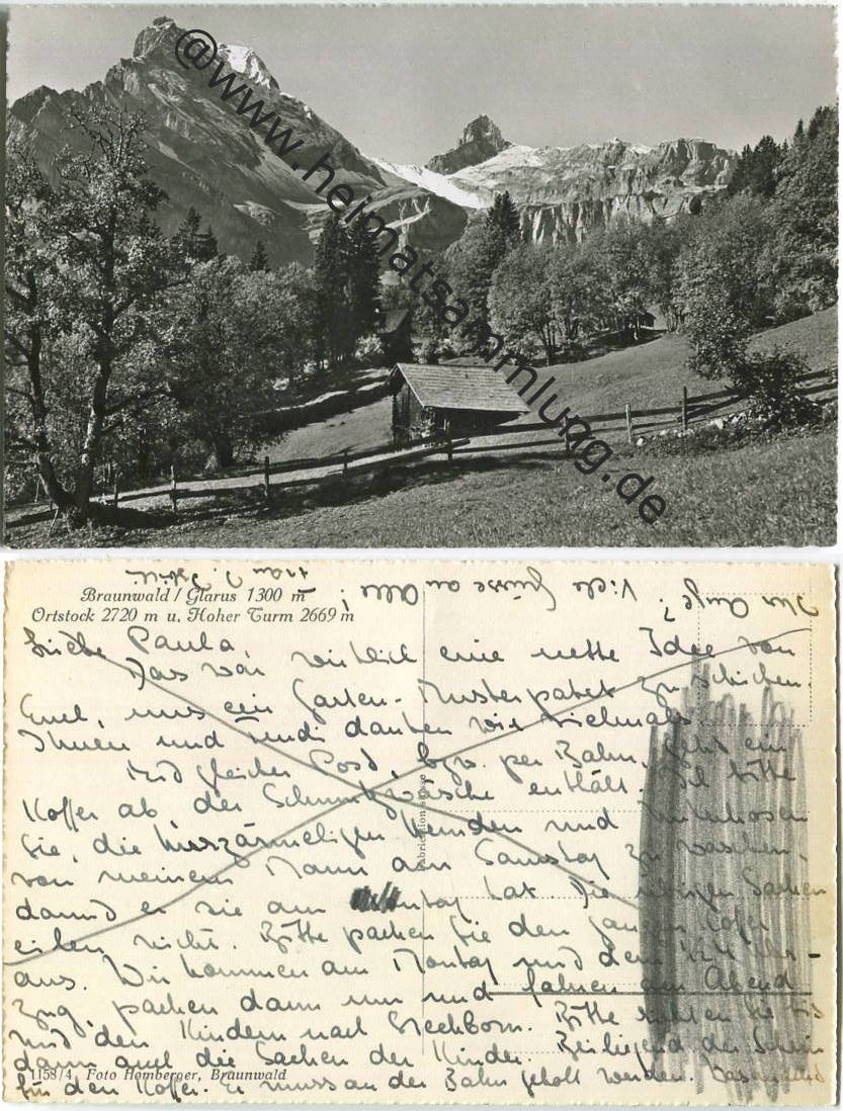 @www.heimatsammlung.de
Ihr Viele Grüsse an Alle!
Braunwald / Glarus 1300 m
Ortstock 2720 m u. Hoher Turm 2669 m
Liebe Paula,
Das war wirklich eine nette Idee von
Euch, uns ein Garten-Musterpaket zu schicken.
Ihnen und danken wir vielmals.
Mit gleicher Post, bzw. per Bahn, geht ein
Koffer ab, der Schmutzwäsche enthält. Ich bitte
Sie, die kurzärmeligen Hemden und Unterhosen
von meinem Mann am Samstag zu waschen,
damit er sie am Montag hat. Die übrigen Sachen
eilen nicht. Bitte packen Sie den ganzen Koffer
aus. Wir kommen am Montag mit dem
Zug, packen dann um und fahren am Abend
mit den Kindern nach Steckborn. Bitte Sie bis
dann auch die Sachen der Kinder. Beiliegend der Schein
1158/4 Foto Homberger, Braunwald
für den Koffer. Er muss an der Bahn geholt werden.